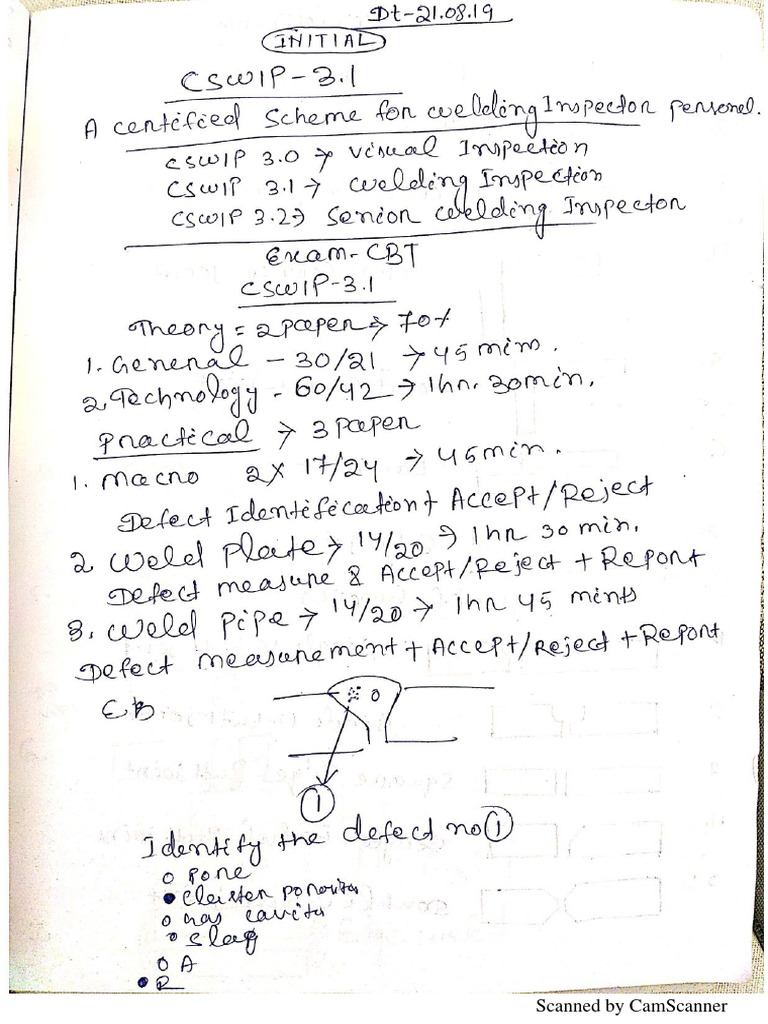 Dt-21.08.19
INITIAL
CSWIP-3.1
A certified Scheme for welding Inspector personel.
CSWIP 3.0 → Visual Inspection
CSWIP 3.1 → welding Inspection
CSWIP 3.2 → Senior welding Inspector
Exam-CBT
CSWIP-3.1
Theory = 2 paper → 70%
1. General - 30/21 → 45 mins.
2. Technology - 60/42 → 1hr. 30min.
Practical → 3 paper
1. Macro 2X 17/24 → 45min.
Defect Identification + Accept/Reject
2. Weld Plate → 14/20 → 1hr 30 min.
Defect measure & Accept/Reject + Report
3. Weld Pipe → 14/20 → 1hr 45 mints
Defect measurement + Accept/Reject + Report
1
Identify the defect no 1
Pore
Cluster porosity
gas cavity
Slag
A
R
Scanned by CamScanner